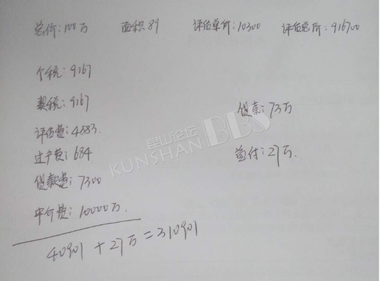 总价:100万 面积:89 评估单价:10300 评估总价:916700
个税:9167
契税:9167
评估费:4583
过户费:684
贷款费:7300
中介费:10000万
贷款:73万
首付:27万
40901+27万=310901
昆山论坛 BBS
KUNSHAN